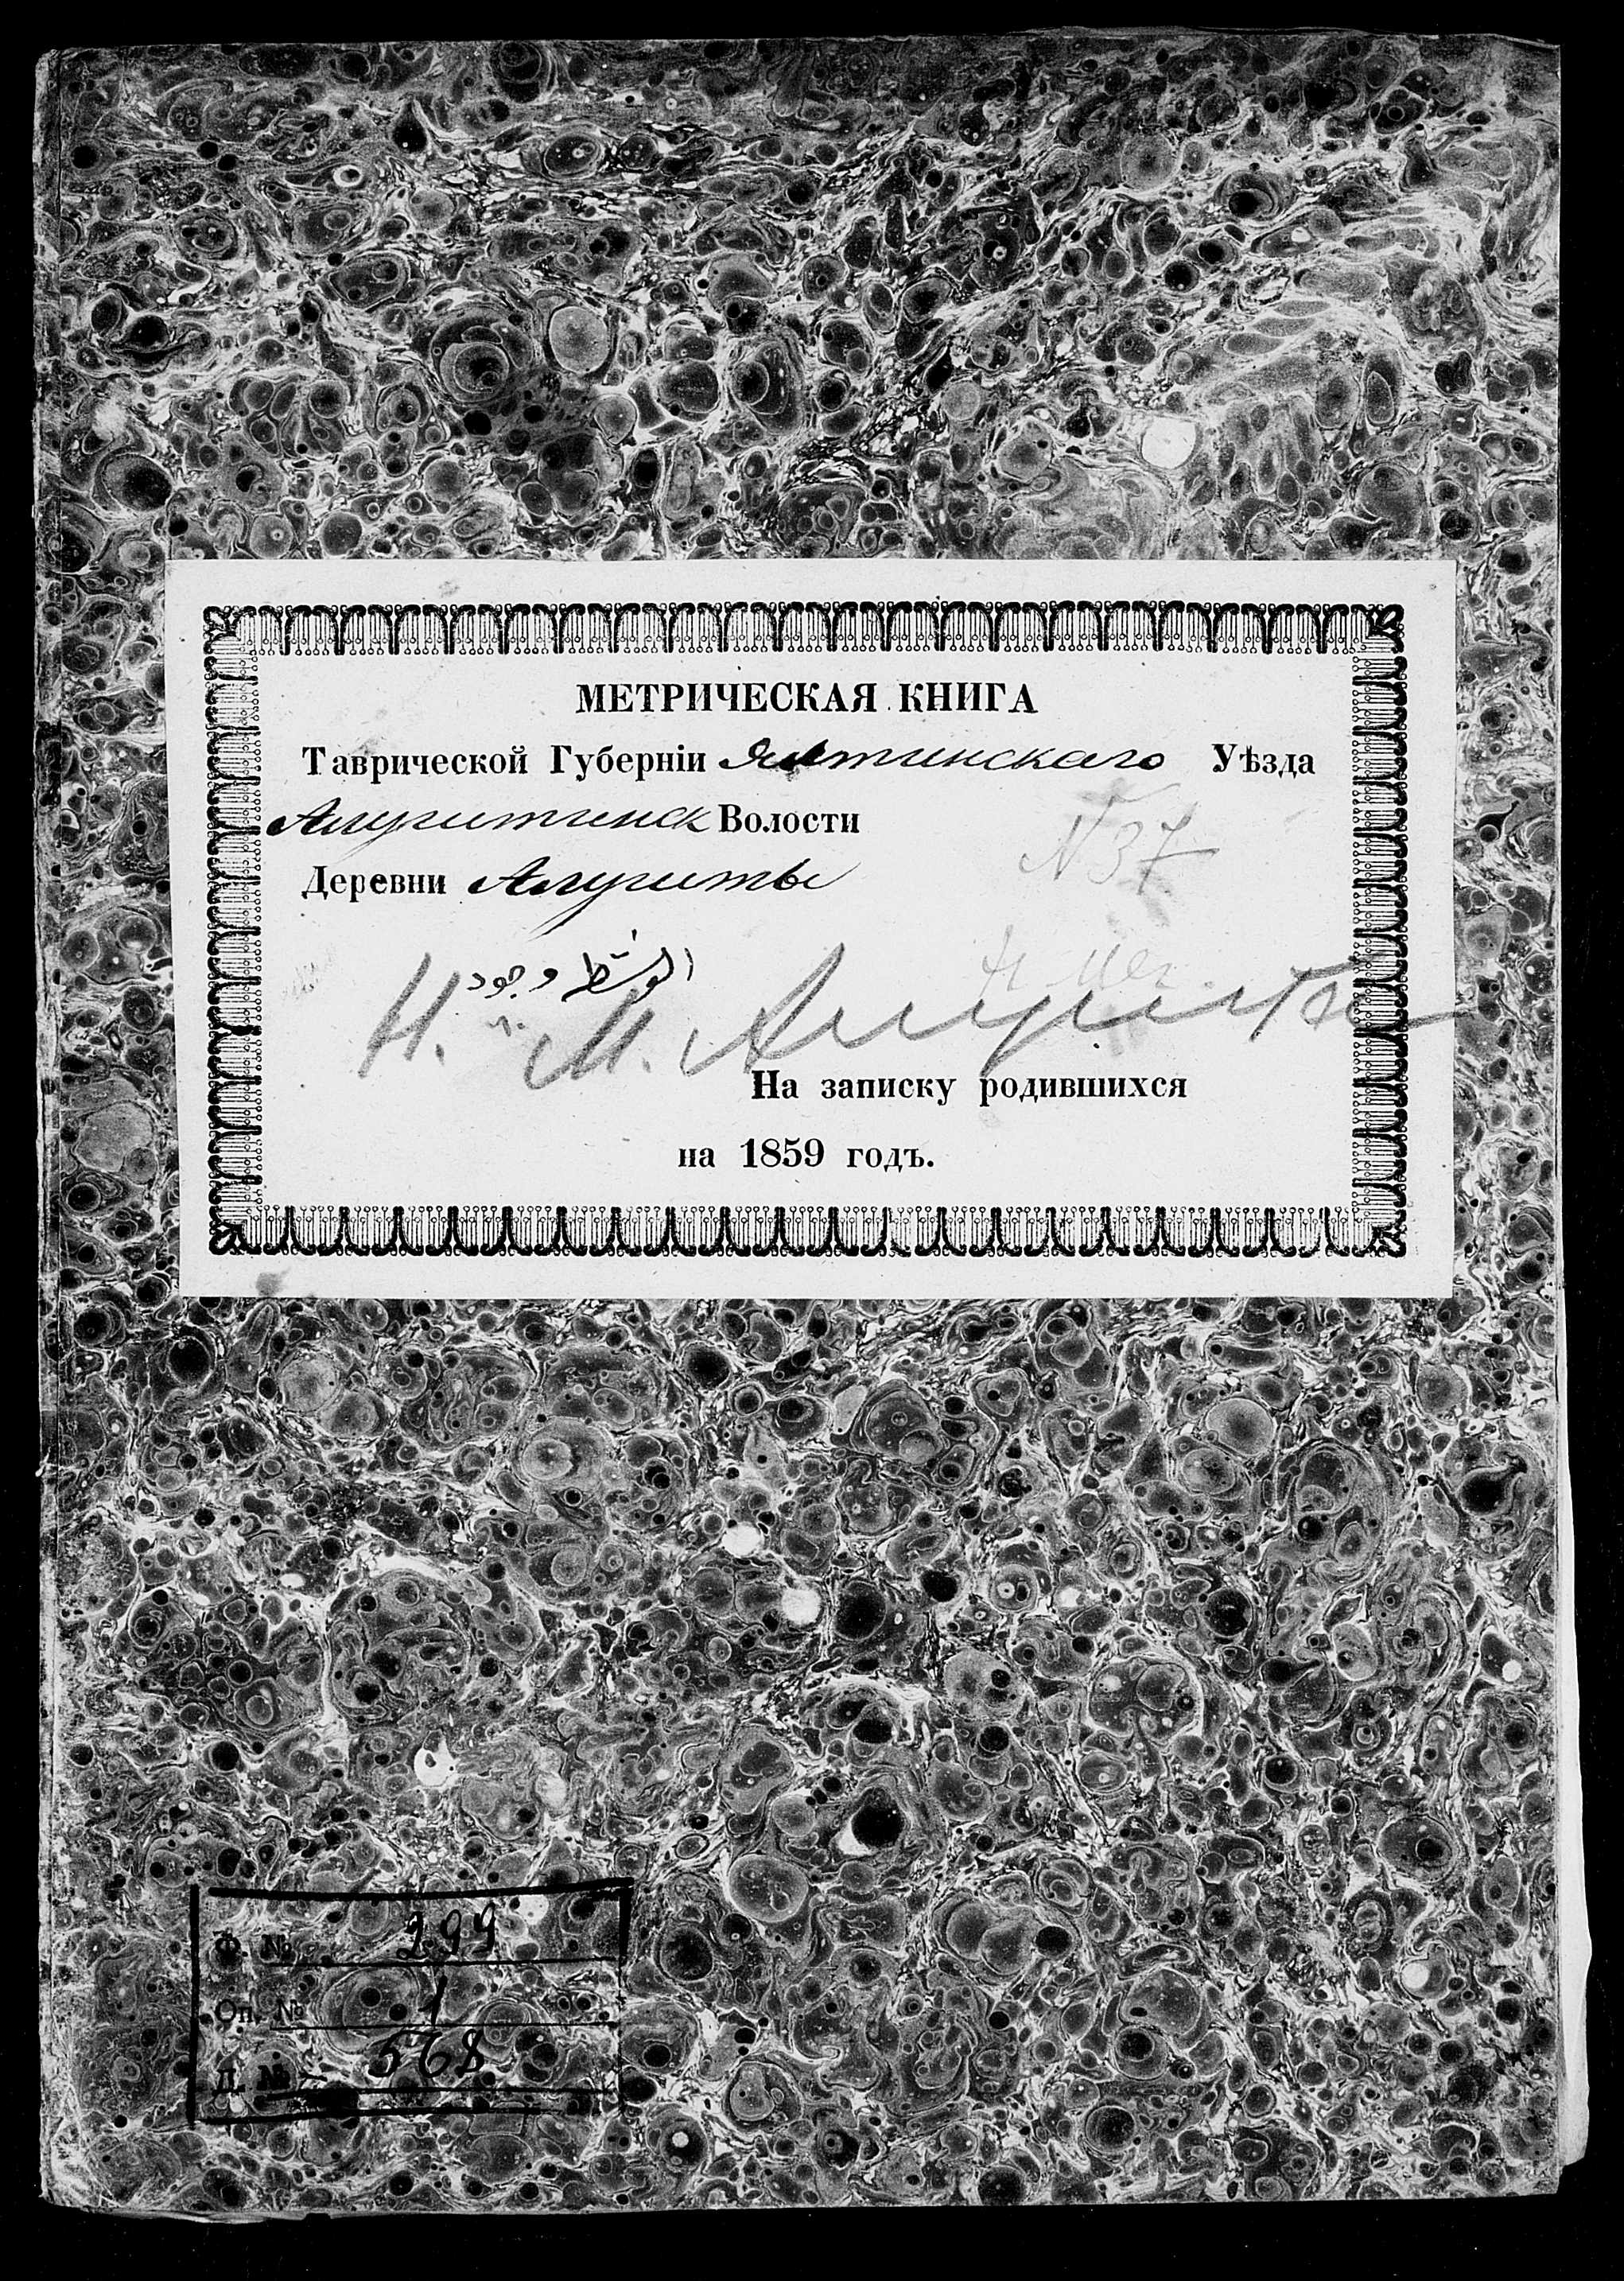 МЕТРИЧЕСКАЯ КНИГА
Таврической Губерніи Ялтинскаго Уѣзда
Алуштинск Волости
Деревни Алушты
N 37
Н. М. Алушта
На записку родившихся
на 1859 годъ.
Ф. № 299
Оп. № 1
Д. № 568